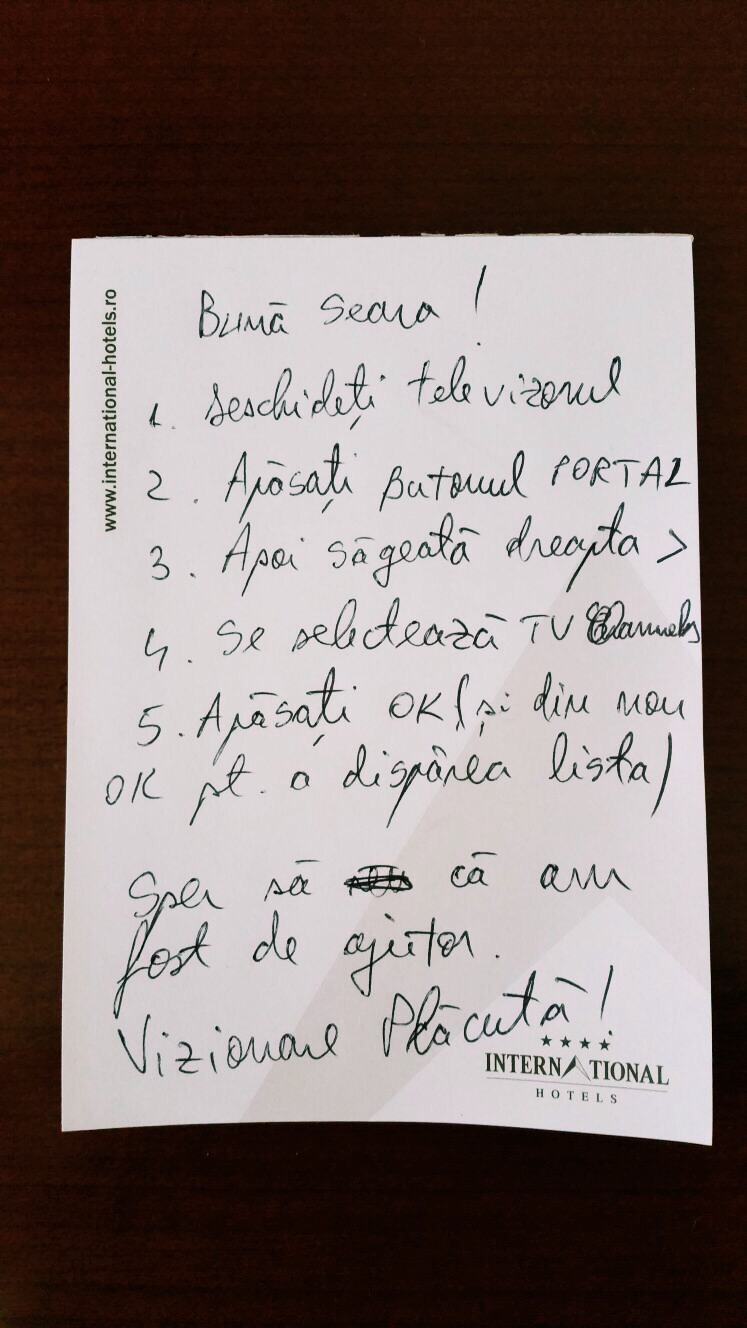 www.international-hotels.ro
Bună seara !
1. Deschideți televizorul
2. Apăsați butonul PORTAL
3. Apoi săgeată dreapta >
4. Se selectează TV Channels
5. Apăsați OK (și din nou
OK pt. a dispărea lista)
Sper să că am
fost de ajutor.
Vizionare Plăcută!
★★★★
INTERNATIONAL
HOTELS